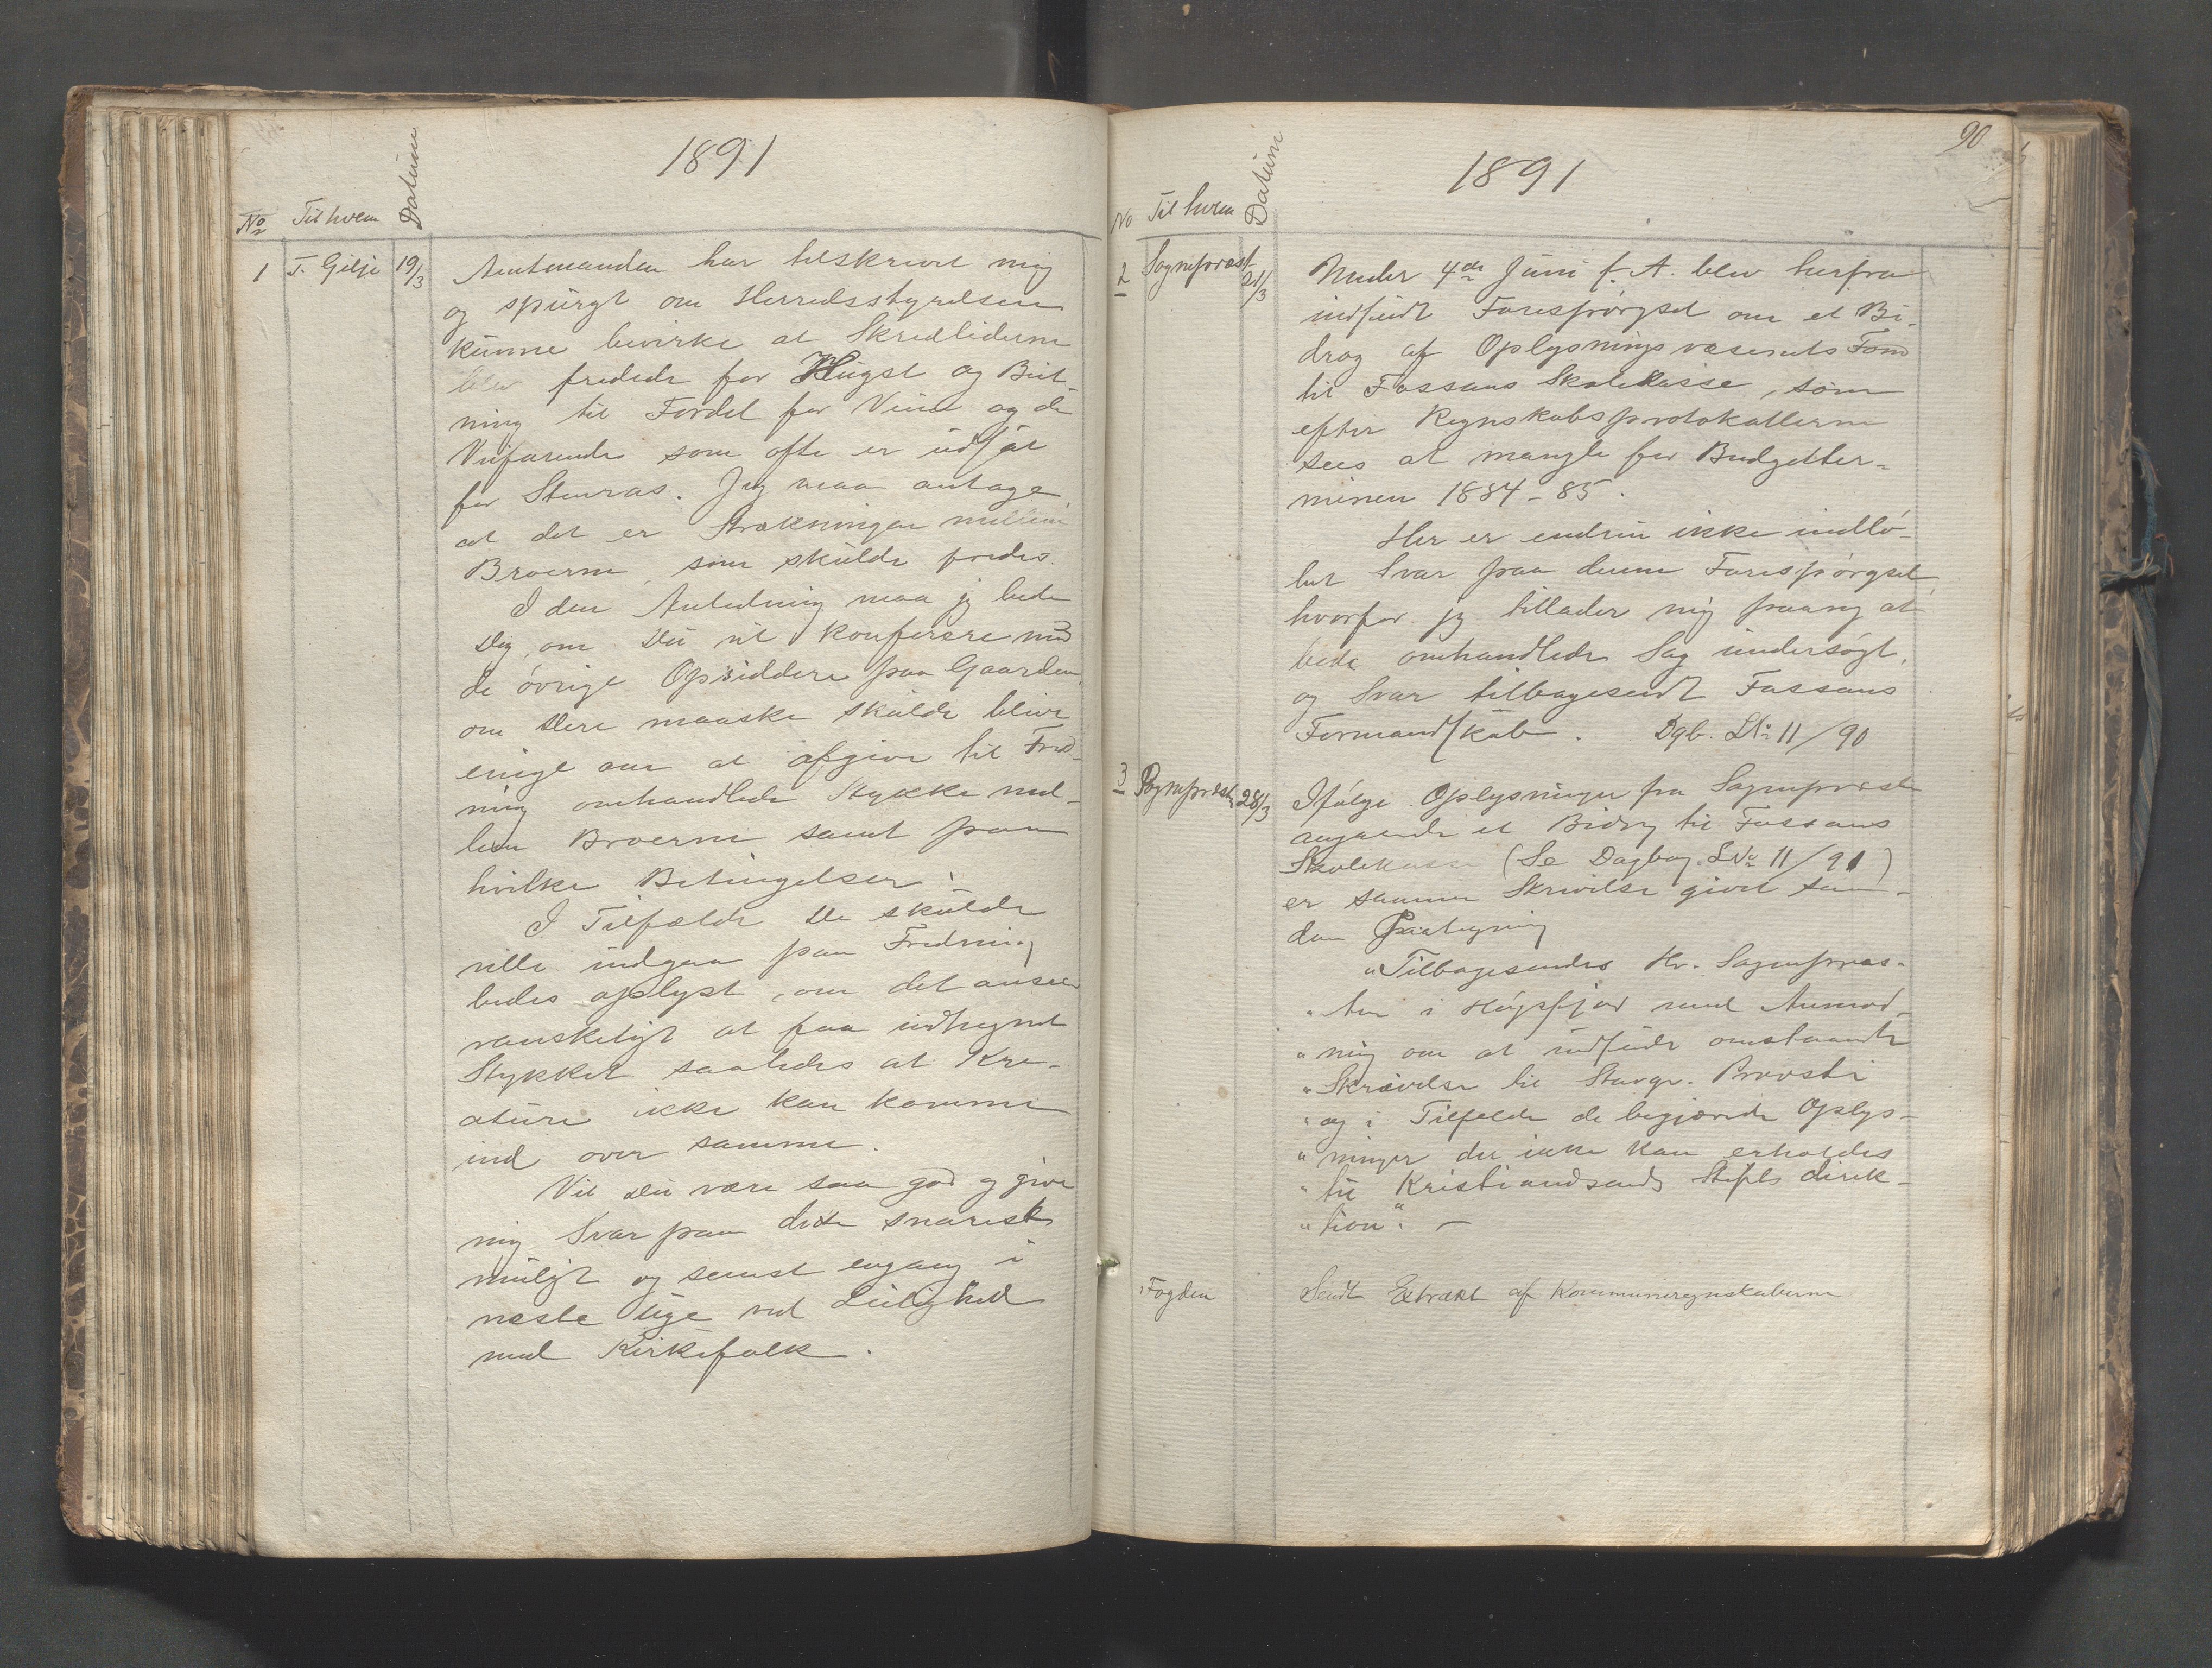 1891
No Til hvem Datum
1 T. Gilje 19/3 Amtmanden har tilskrevet mig
og spurgt om Herredsstyrelsen
kunne bevirke at Skredliderne
blev fredede for Hugst og Beit-
ning til Fordel for Veien og de
Veifarende som ofte er udsat
for Stenras. Jeg maa antage
at det er Strækningen mellem
Broerne, som skulde fredes.
I den Anledning maa jeg bede
Dig, om Du vil konferere med
de øvrige Opsiddere paa Gaarden,
om Dere maaske skulde blive
enige om at afgive til Fred-
ning omhandlede Stykke mel-
lem Broerne samt paa
hvilke Betingelser.
I Tilfælde De skulde
ville indgaa paa Fredning
bedes oplyst, om det ansees
vanskeligt at faa indhegnet
Stykket saaledes at Kre-
ature ikke kan komme
ind over samme.
Vil Du være saa god og give
mig Svar paa dette snarest
muligt og senest engang i
næste Uge ved Leilighed
med Kirkefolk.
90
1891
No Til hvem Datum
2 Sognepræst 21/3 Under 4de Juni f. A. blev herfra
indsendt Forespørgsel om et Bi-
drag af Oplysningsvæsenets Fond
til Fossans Skolekasse, som
efter Regnskabsprotokollerne
sees at mangle for Budgetter-
minen 1884-85.
Her er endnu ikke indlø-
bet Svar paa denne Forespørgsel,
hvorfor jeg tillader mig paany at
bede omhandlede Sag undersøgt,
og Svar tilbagesendt Fossans
Formandskab. Dgb. LNo 11/90
3 Sognepræsten 28/3 Ifølge Oplysninger fra Sognepræsten
angaaende et Bidrag til Fossans
Skolekasse (Se Dagbog LNo 11/91)
er samme Skrivelse givet saa-
dan Paategning
"Tilbagesendes Hr. Sognepræs-
"ten i Høgsfjord med Anmod-
"ning om at indsende omstaaende
"Skrivelse til Stavgr. Provsti
"og i Tilfælde de begjærede Oplys-
"ninger der ikke kan erholdes
"til Kristiandsands Stifts direk-
"tion". —
Fogden Sendt Extrakt af Kommuneregnskaberne